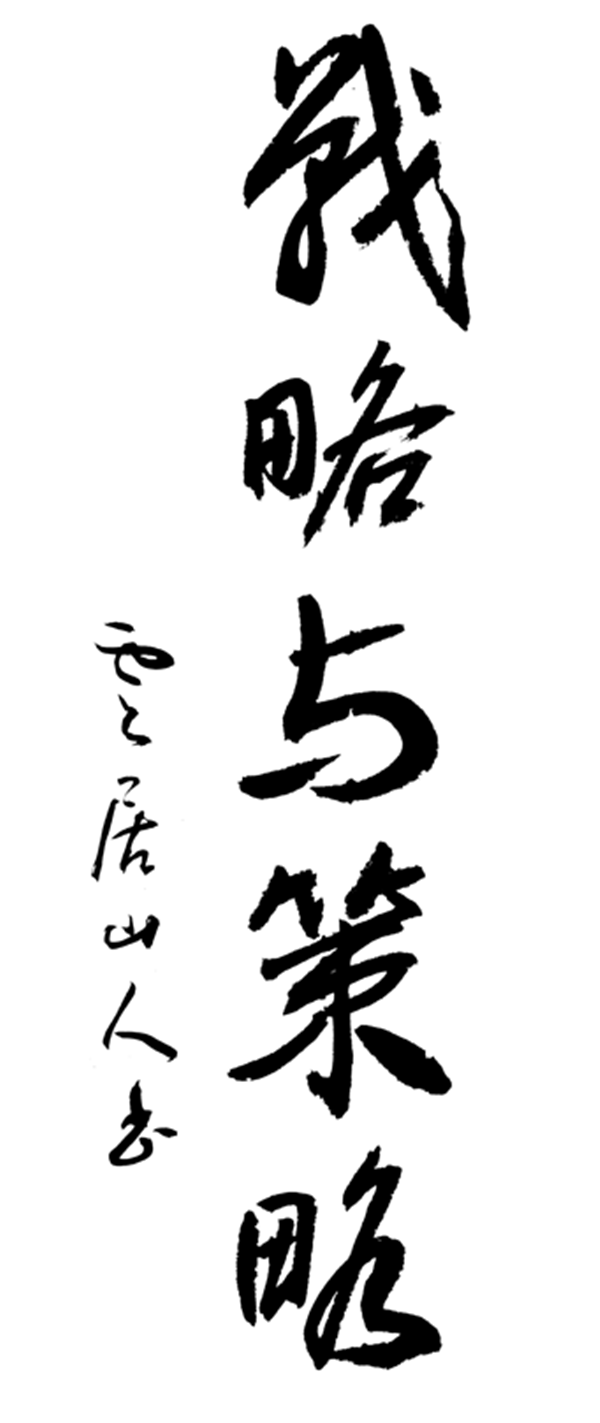 戰略与策略
雲居山人书